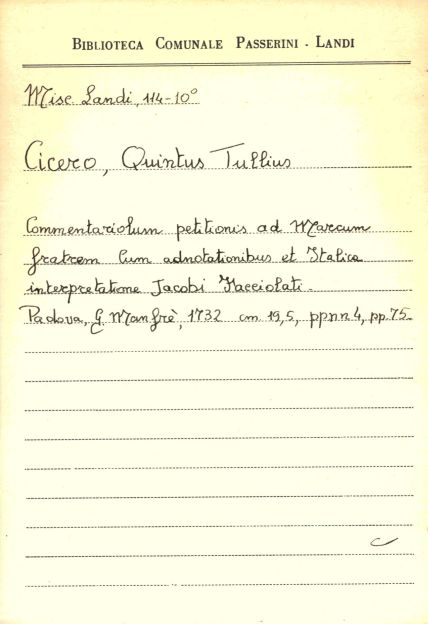 BIBLIOTECA COMUNALE PASSERINI - LANDI
Misc Landi, 114-10°
Cicero, Quintus Tullius
Commentariolum petitionis ad Marcum
fratrem Cum adnotationibus et Italica
interpretatione Jacobi Facciolati.
Padova, G. Manfrè, 1732 cm 19,5, pp.nn 4, pp. 75.